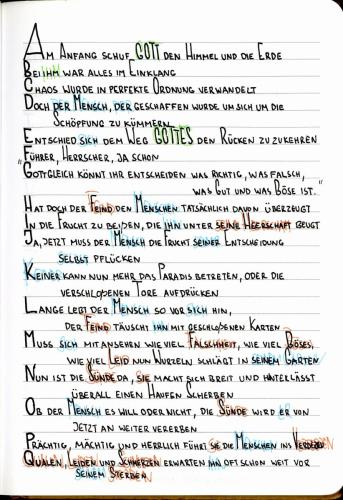 Am Anfang schuf GOTT den Himmel und die Erde
Bei IHM war alles im Einklang
Chaos wurde in perfekte Ordnung verwandelt
Doch der Mensch, der geschaffen wurde um sich um die
Schöpfung zu kümmern
Entschied sich dem Weg GOTTES den Rücken zuzukehren
"Führer, Herrscher, ja schon
Gottgleich könnt ihr entscheiden was richtig, was falsch,
was Gut und was Böse ist."
Hat doch der Feind den Menschen tatsächlich davon überzeugt
In die Frucht zu beißen, die ihn unter seine Heerschaft beugt
Ja, jetzt muss der Mensch die Frucht seiner Entscheidung
selbst pflücken
Keiner kann nun mehr das Paradis betreten, oder die
verschloßenen Tore aufdrücken
Lange lebt der Mensch so vor sich hin,
der Feind täuscht ihn mit geschloßenen Karten
Muss sich mit ansehen wie viel Falschheit, wie viel Böses,
wie viel Leid nun Wurzeln schlägt in seinem Garten
Nun ist die Sünde da, sie macht sich breit und hinterlässt
überall einen Haufen Scherben
Ob der Mensch es will oder nicht, die Sünde wird er von
jetzt an weiter vererben
Prächtig, mächtig und herrlich führt sie die Menschen ins Verderben
Qualen, Leiden und Schmerzen erwarten ihn oft schon weit vor
seinem Sterben